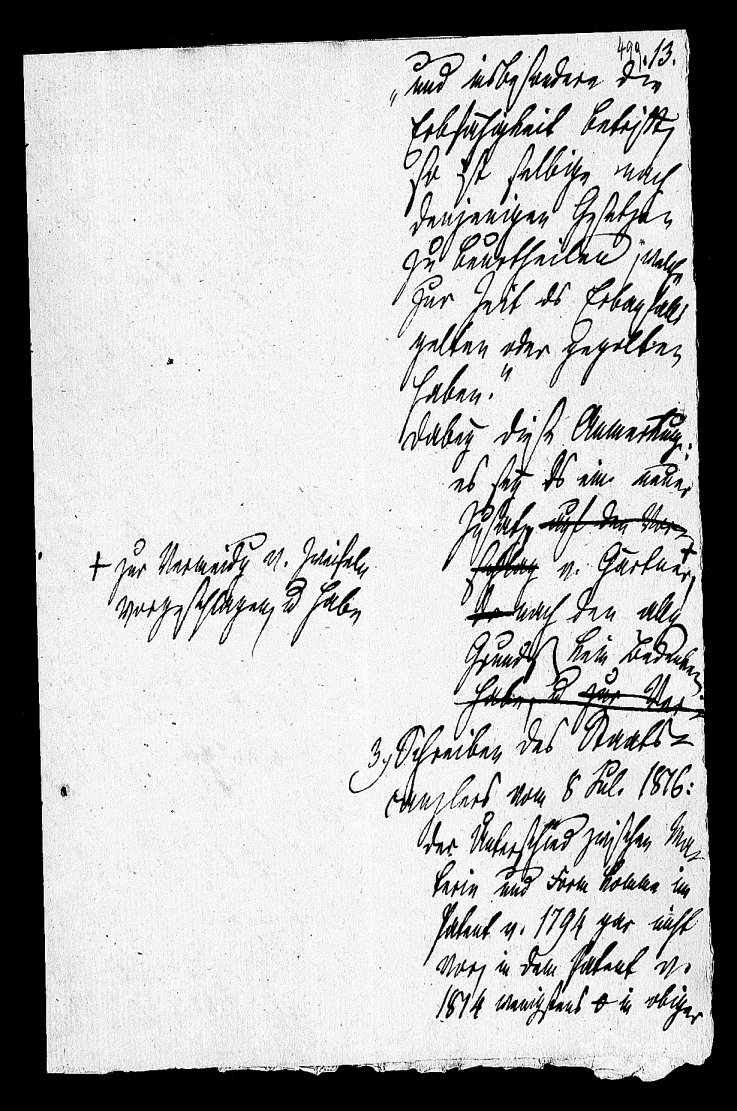 499. 13.
„und insbesondere die
Erbfähigkeit betrifft,
so ist selbige nach
denjenigen Gesetzen
zu beurtheilen, welche
zur Zeit ds Erbanfalls
gelten oder gegolten
haben."
Dabey diese Anmerkung:
es sey ds ein neuer
Zusatz, auf den Vor-
schlag v. Gärtner, +
nach den alten
Grunds. kein Bedenken
habe, u zur Ver-
+ zur Vermeidg v. Zweifeln
vorgeschlagen, u habe
3, Schreiben des Staats-
canzlers vom 8 Jul. 1816:
der Unterschied zwischen Ma-
terie und Form komme im
Patent v. 1794 gar nicht
vor, in dem Patent v.
1814 wenigstens in obiger